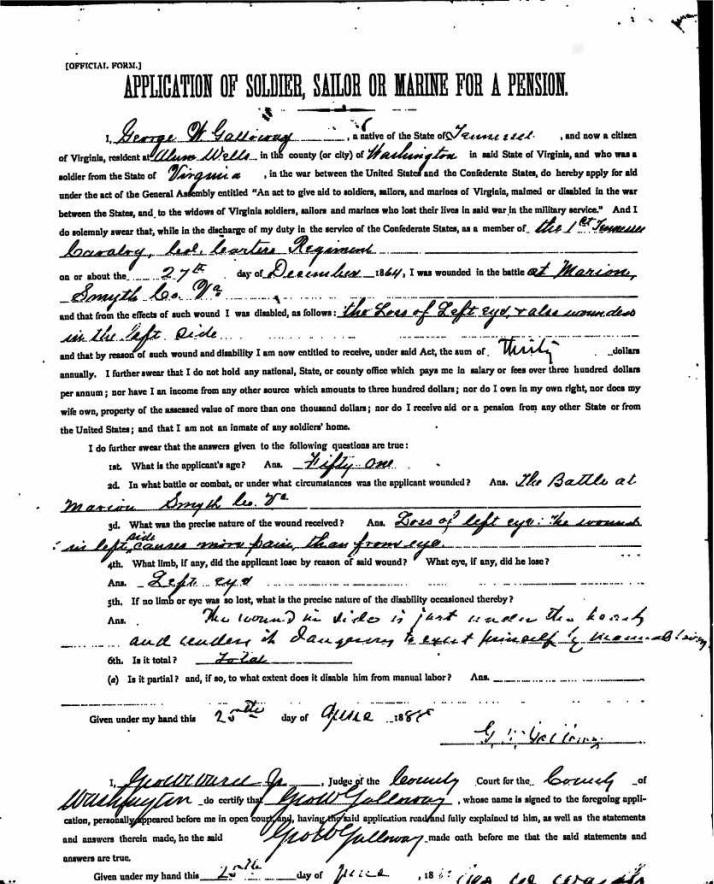 [OFFICIAL FORM.]
APPLICATION OF SOLDIER, SAILOR OR MARINE FOR A PENSION.
I, George W Galloway, a native of the State of Tennessee, and now a citizen
of Virginia, resident at Alum Wells in the county (or city) of Washington in said State of Virginia, and who was a
soldier from the State of Virginia, in the war between the United States and the Confederate States, do hereby apply for aid
under the act of the General Assembly entitled "An act to give aid to soldiers, sailors, and marines of Virginia, maimed or disabled in the war
between the States, and to the widows of Virginia soldiers, sailors and marines who lost their lives in said war in the military service." And I
do solemnly swear that, while in the discharge of my duty in the service of the Confederate States, as a member of the 1st Tennessee
Cavalry, Col. Carters Regiment
on or about the 27th day of December 1864, I was wounded in the battle at Marion,
Smyth Co. Va
and that from the effects of such wound I was disabled, as follows: the Loss of Left eye, & also wounded
in the left side
and that by reason of such wound and disability I am now entitled to receive, under said Act, the sum of thirty dollars
annually. I further swear that I do not hold any national, State, or county office which pays me in salary or fees over three hundred dollars
per annum; nor have I an income from any other source which amounts to three hundred dollars; nor do I own in my own right, nor does my
wife own, property of the assessed value of more than one thousand dollars; nor do I receive aid or a pension from any other State or from
the United States; and that I am not an inmate of any soldiers' home.
I do further swear that the answers given to the following questions are true:
1st. What is the applicant's age? Ans. Fifty one
2d. In what battle or combat, or under what circumstances was the applicant wounded? Ans. The Battle at
Marion Smyth Co. Va
3d. What was the precise nature of the wound received? Ans. Loss of left eye: the wound
in left side causes more pain, than from eye.
4th. What limb, if any, did the applicant lose by reason of said wound? What eye, if any, did he lose?
Ans. Left eye
5th. If no limb or eye was so lost, what is the precise nature of the disability occasioned thereby?
Ans. The wound in side is just under the heart
and renders it dangerous to exert himself by manual labor
6th. Is it total? total
(a) Is it partial? and, if so, to what extent does it disable him from manual labor? Ans.
Given under my hand this 25th day of June 188
G. W. Galloway
I, Geo W Ward Jr, Judge of the County Court for the County of
Washington do certify that Geo W Galloway, whose name is signed to the foregoing appli-
cation, personally appeared before me in open court, and, having the said application read and fully explained to him, as well as the statements
and answers therein made, he the said Geo W Galloway made oath before me that the said statements and
answers are true.
Given under my hand this 25th day of June, 188